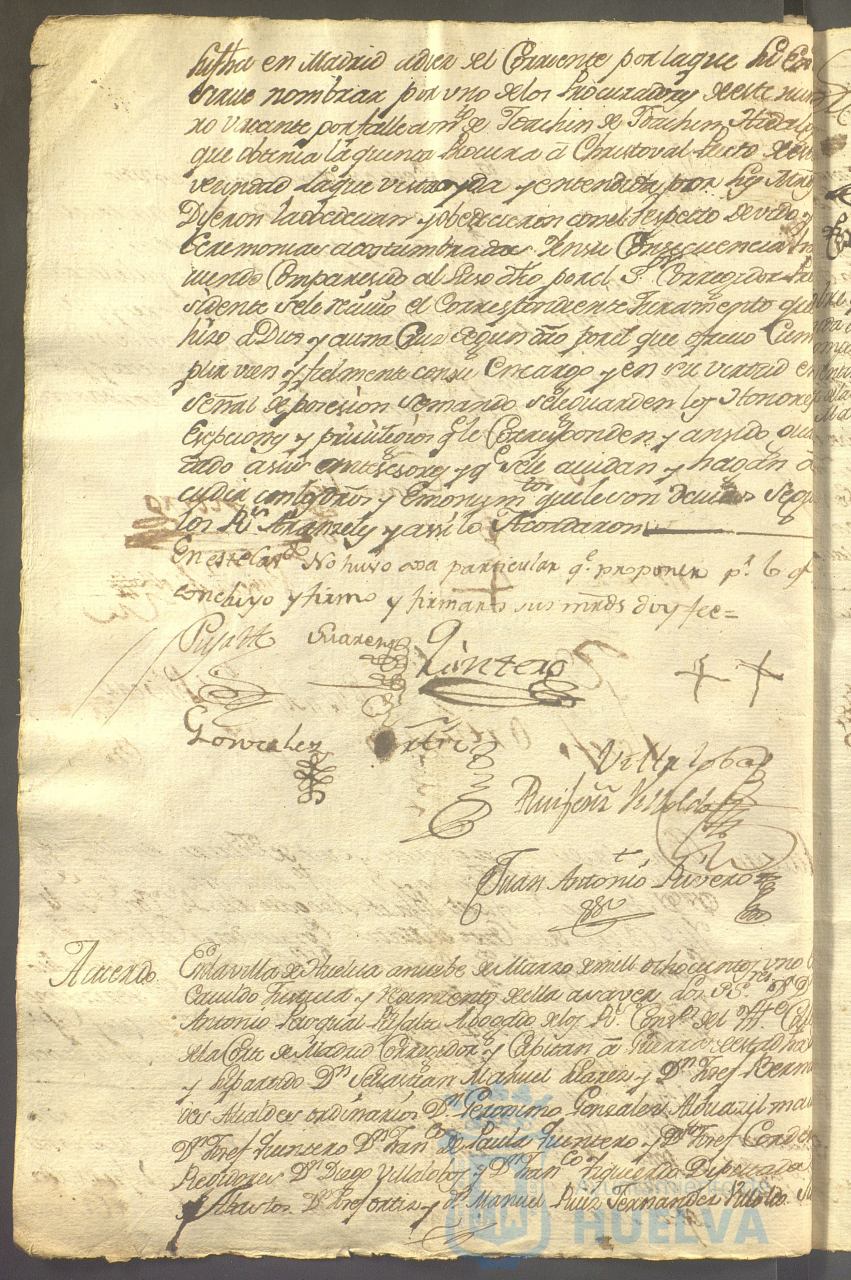 fecha en Madrid a dies del Corriente por la que Su Ex
sirve nombrar por uno de los Procuradores de este num
ro vacante por fallecimto de Joachin Hidalgo
que obtenia la quinta Procura á Christoval de esta
vecindad la que vista oyda y entendida por Sus Mrds
Dijeron la obedecian y obedecieron con el respecto devido y
Ceremonias acostumbradas. En su Consecuencia ha
viendo Comparecido al dho por el Sr Corregidor Pre
sidente se le recivio el Correspondiente Juramento que
hizo á Dios y a una Cruz segun dro por el que ofrecio Cum
plir vien y fielmente con su encargo y en su virtud en
señal de posesion se mando se le guarden los Honores
Escepciones y privilegios qe le Corresponden y an sido
a sus antesesores y qe se le acudan y hagan a
cudir con los dros y Emolumtos que le son devidos segun
los Rs Aranzeles y assi lo Acordaron
En este estado No huvo cosa particular qe proponer pr lo qe
concluyo y firmo y firmaron sus mrds doy fee=
Suarez
Quintero
Gonzalez
Ortiz
Villalobos
Ruifern Villoldo
Juan Antonio Rivero
Acuerdo.
En la villa de Huelva a nuebe de Marzo de mill ochocientos y uno
Cavildo Justicia y Regimiento de ella a saver los SSres Dn
Antonio Pasqual Abogado de los Rs Consos del Iltre Col
de la Corte de Madrid Corregidor y Capitan á Guerra de esta dha
y su partido Dn Sebastian Manuel Suarez y Dn Josef Berm
Alcaldes ordinarios Dn Geronimo Gonzalez Alguazil ma
Dn Josef Quintero Dn Franco de Paula Quintero y Dn Josef
Regidores Dn Diego Villalobos y Dn Franco Figueroa Diputados
Abastos Dn Josef Ortiz y Dn Manuel Ruiz Fernandez Villoldo
Ayuntamiento de
HUELVA